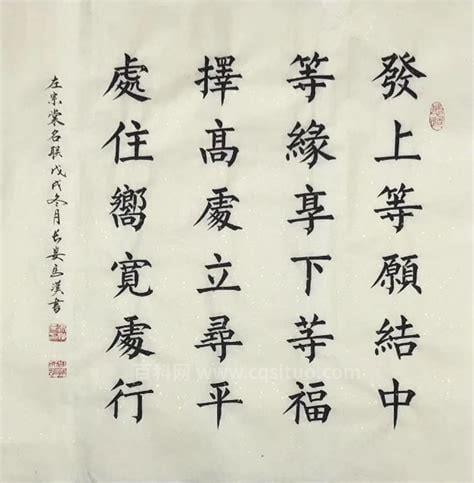 發上等願結中
等緣享下等福
擇髙處立尋平
處住嚮寬處行
左宗棠名联戊戌冬月长馬漢書
百科网 www.cqsituo.com